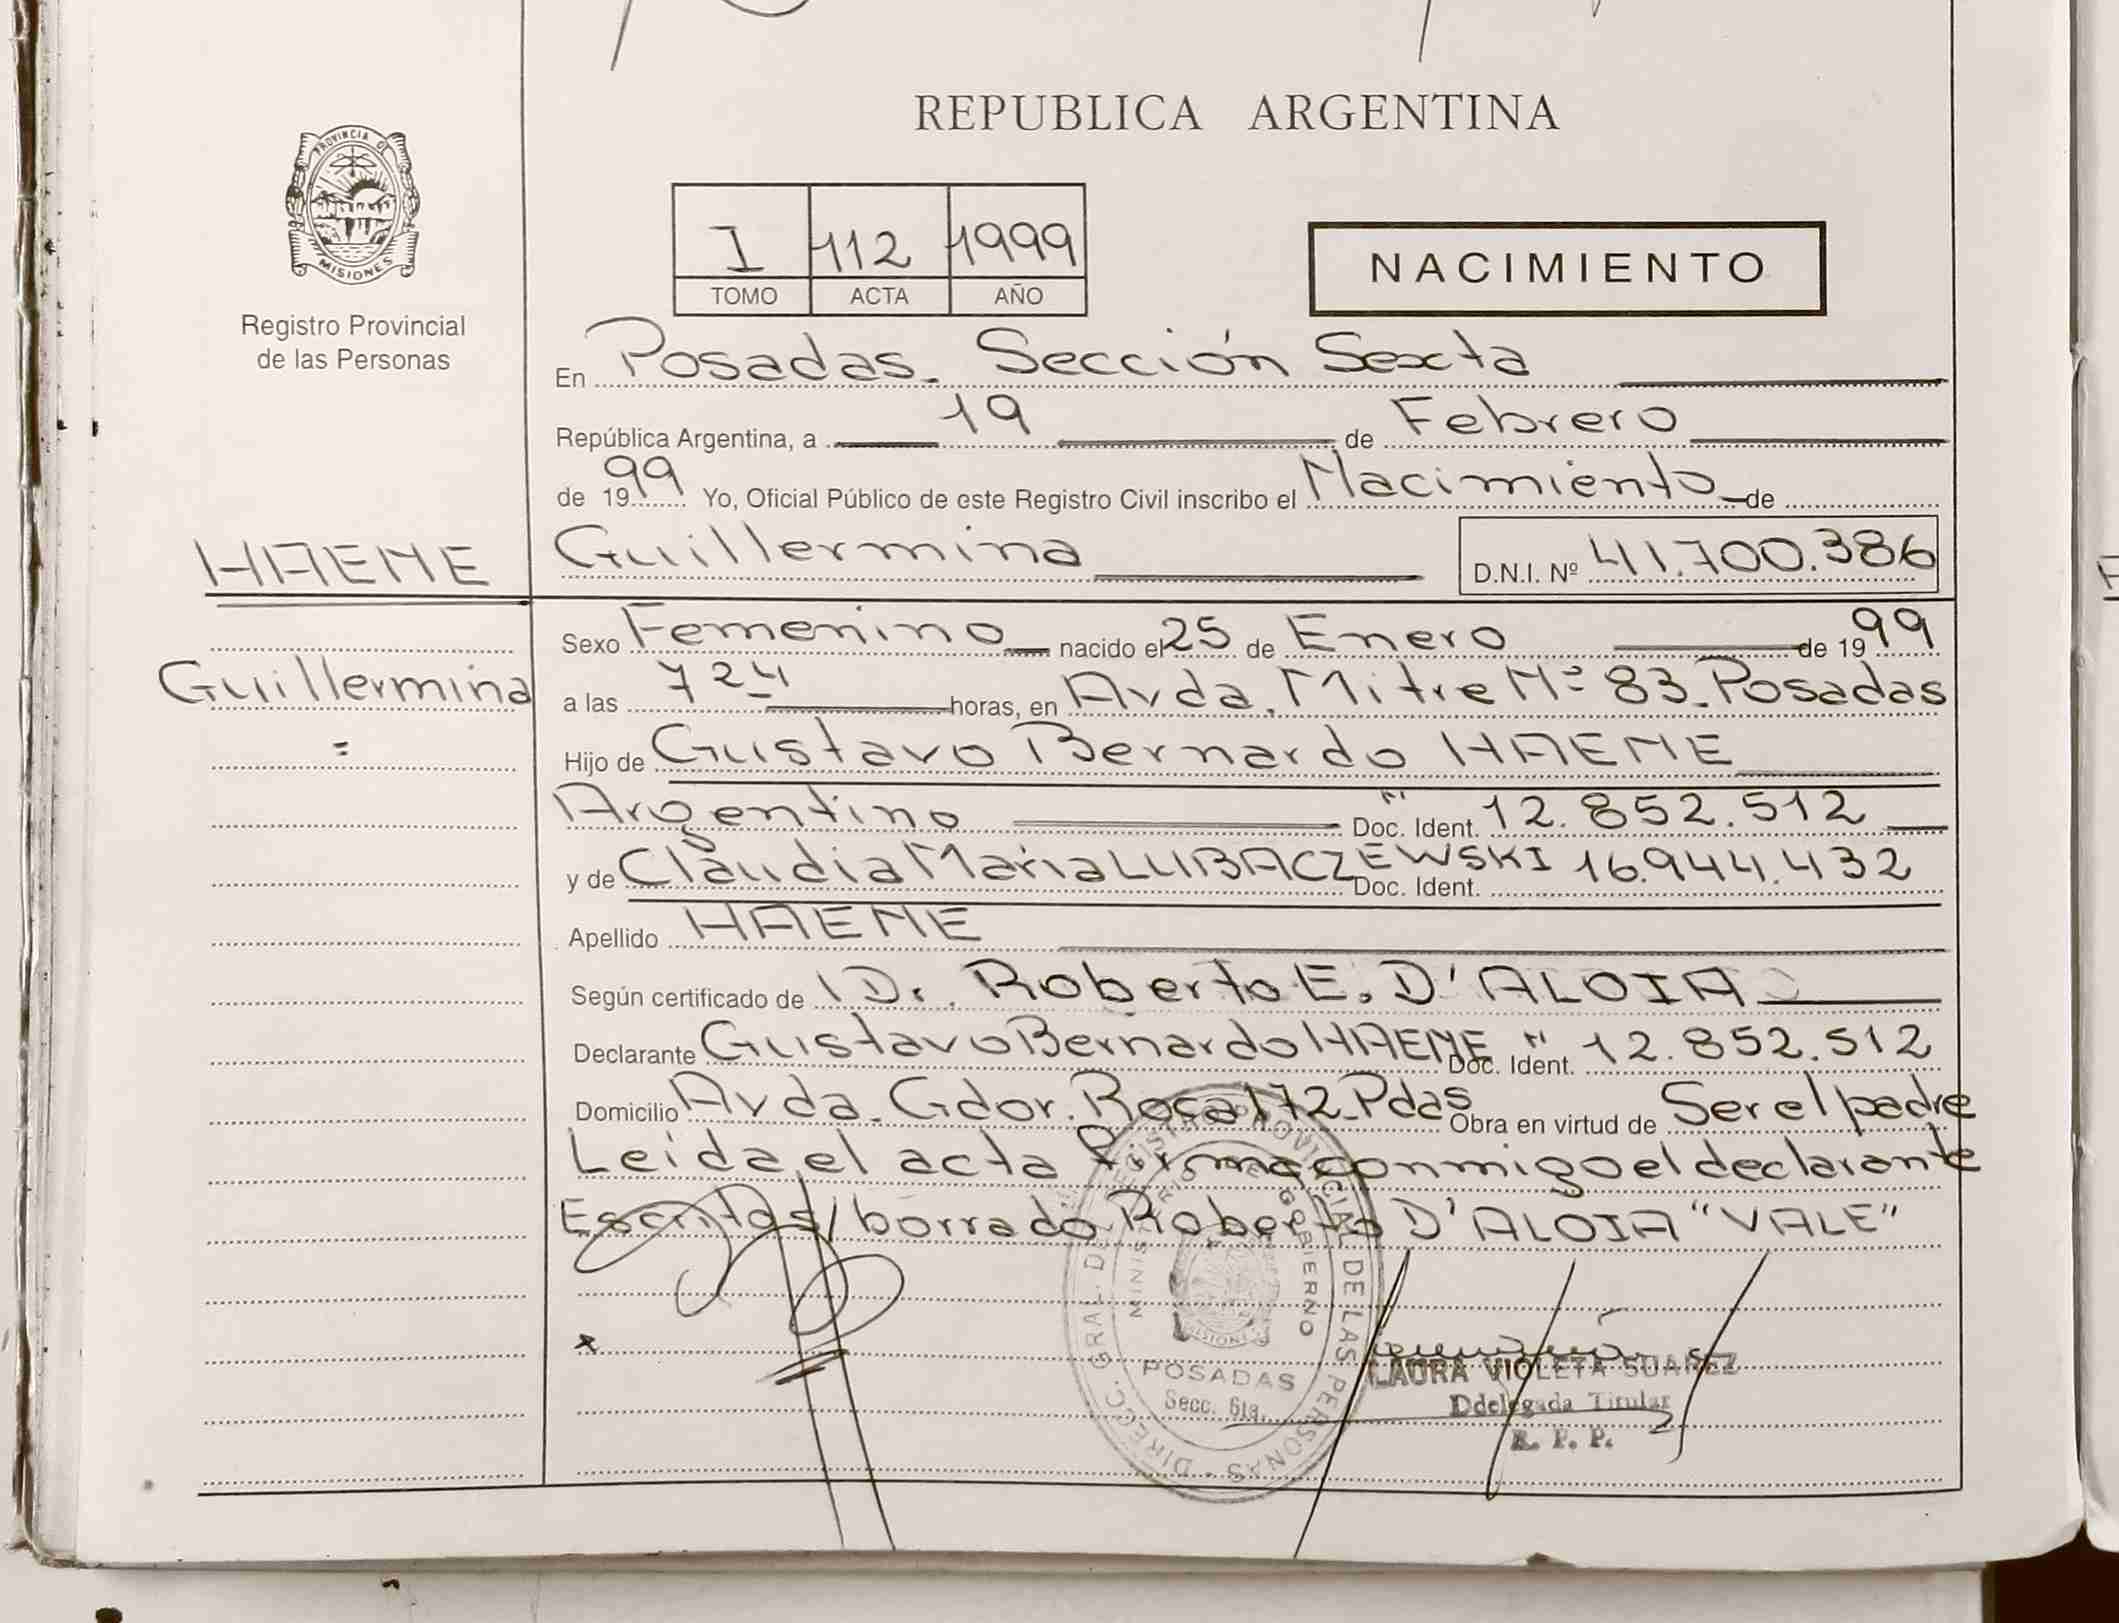 REPUBLICA ARGENTINA
PROVINCIA DE
MISIONES
Registro Provincial
de las Personas
I 112 1999
TOMO ACTA AÑO
NACIMIENTO
En Posadas. Sección Sexta
República Argentina, a 19 de Febrero
de 1999 Yo, Oficial Público de este Registro Civil inscribo el Nacimiento de
HAENE
Guillermina D.N.I. Nº 41.700.386
Sexo Femenino nacido el 25 de Enero de 1999
Guillermina
a las 724 horas, en Avda. Mitre Nº 83. Posadas
=
Hijo de Gustavo Bernardo HAENE
Argentino " Doc. Ident. 12.852.512
y de Claudia María LUBACZEWSKI Doc. Ident. 16.944.432
Apellido HAENE
Según certificado de Dr. Roberto E. D'ALOIA
Declarante Gustavo Bernardo HAENE " Doc. Ident. 12.852.512
Domicilio Avda. Gdor. Roca 172. Pdas Obra en virtud de Ser el padre
Leida el acta firma conmigo el declarante
Escritos/borrado Roberto D'ALOIA "VALE"
x
DIRECC. GRAL. DEL REGISTRO PROVINCIAL DE LAS PERSONAS
MINISTERIO DE GOBIERNO
MISIONES
POSADAS
Secc. 6ta.
LAURA VIOLETA SUAREZ
Ddelegada Titular
R. P. P.